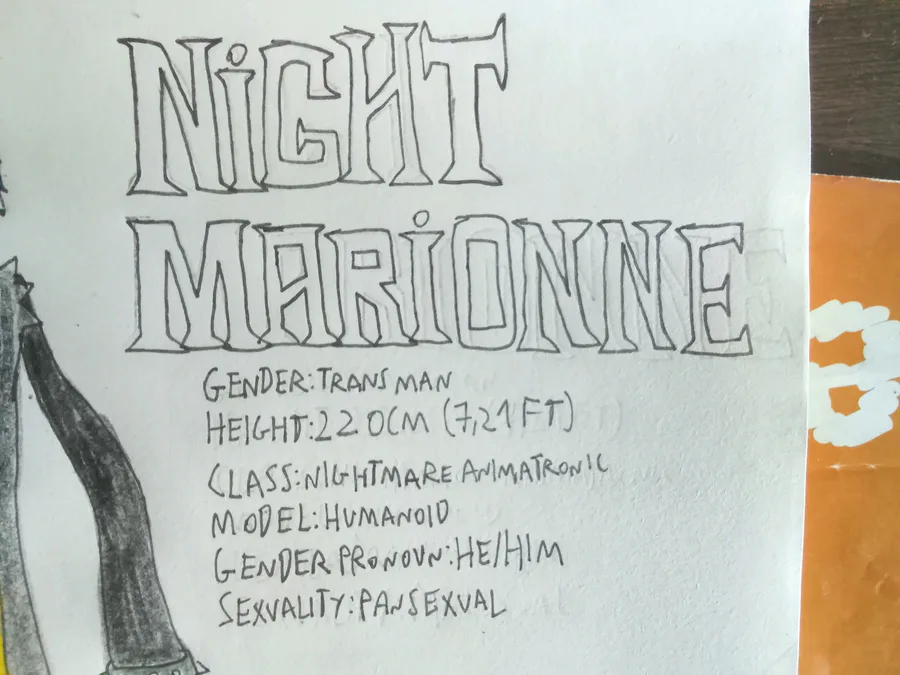 NiGHT
MARiONNE
GENDER:TRANS MAN
HEIGHT:220CM (7,21 FT)
CLASS:NIGHTMARE ANIMATRONIC
MODEL:HUMANOID
GENDER PRONOUN:HE/HIM
SEXUALITY:PANSEXUAL